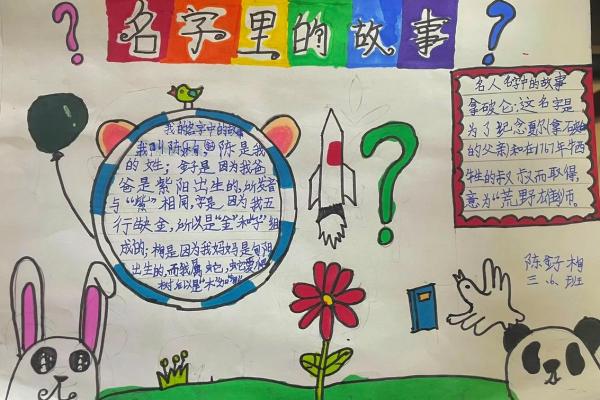 名字里的故事
我的名字中的故事
我叫陈
陈是我
的姓；
是因为我爸
爸是紫阳出生的，所以音
与“紫”相同，字是因为我五
行缺金，所以是“金”和“子”组
成的；栂是因为我妈妈是旬阳
出生的，而我属蛇，蛇要
树，所以是“木”
名人名字中的故事
拿破仑：这名字是
为了纪念
拿破仑
的父亲和在1767年牺
牲的叔叔而取得，
意为“荒野雄狮”。
陈
三、6、班